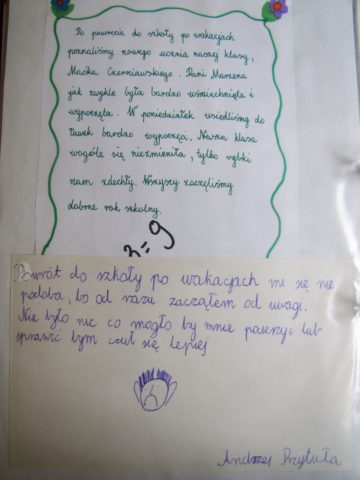 Po powrocie do szkoły po wakacjach
poznaliśmy nowego ucznia naszej klasy,
Maćka Czerniawskiego. Pani Marzena
jak zwykle była bardzo uśmiechnięta i
wypoczęta. W poniedziałek usiedliśmy do
ławek bardzo wypoczęci. Nasza klasa
wogóle się niezmieniła, tylko rybki
nam zdechły. Wszyscy zaczęliśmy
dobrze rok szkolny.
3=9
Powrót do szkoły po wakacjach mi się nie
podoba, bo od razu zacząłem od uwagi.
Nie było nic co mogło by mnie poruszyć lub
sprawić bym czuł się lepiej
Andrzej Przytuła